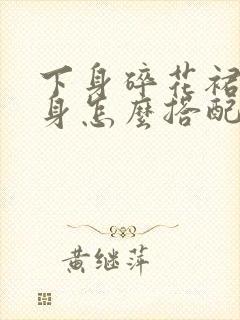 下身碎花裙
身怎麽搭配
黄继萍